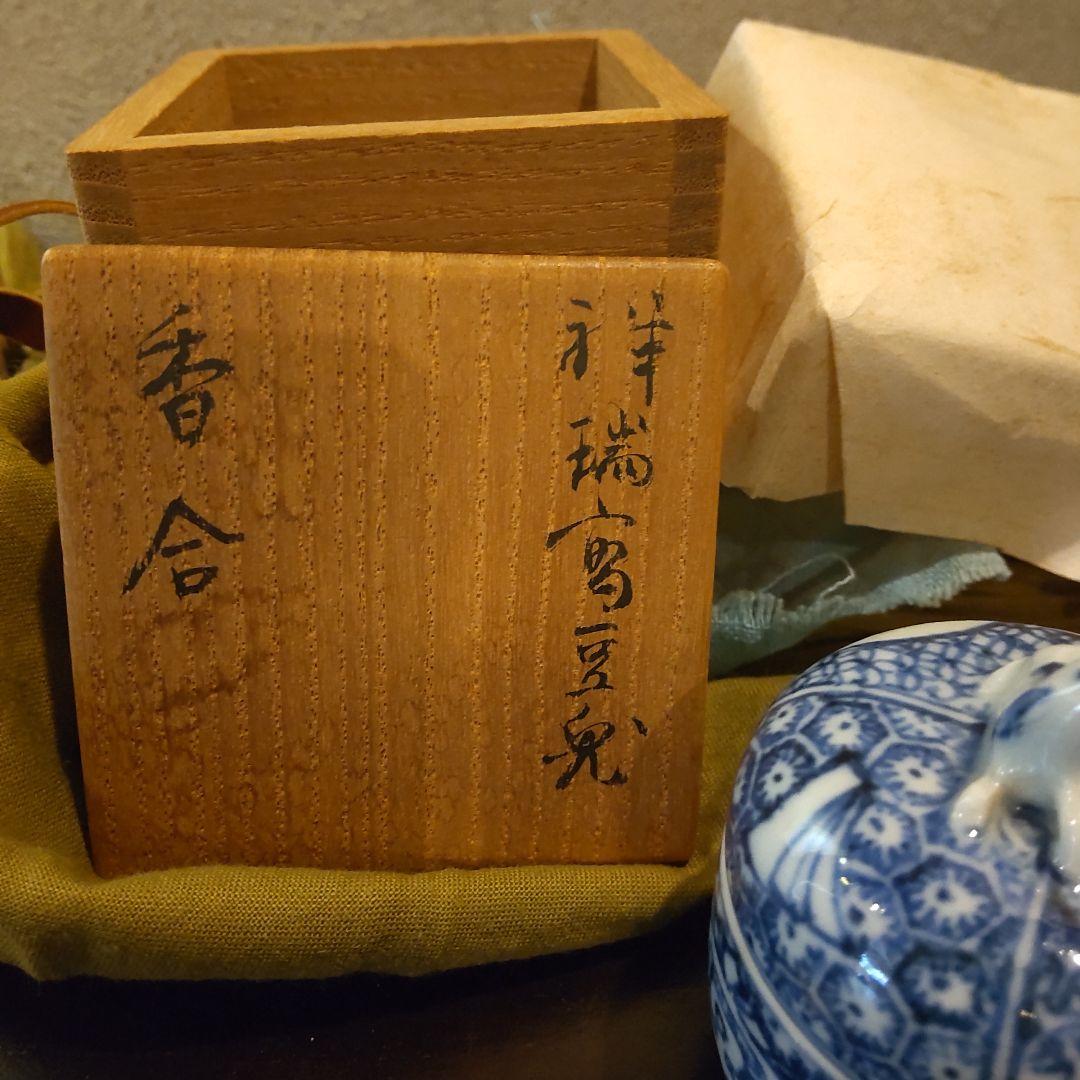 祥瑞写豆兎
香合